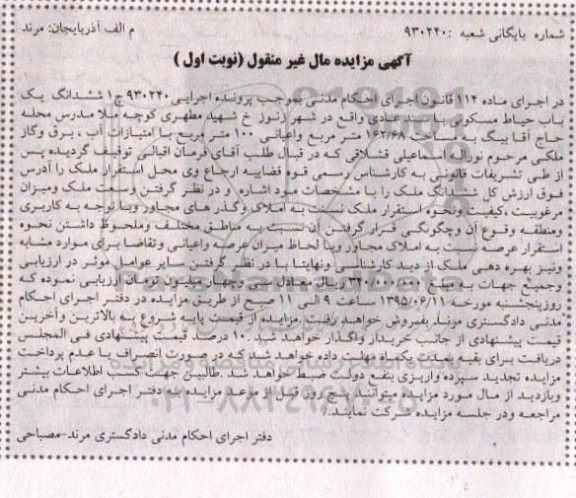 شماره بایگانی شعبه : ۹۳۰۲۲۰
م الف آذربایجان: مرند
آگهی مزایده مال غیر منقول (نوبت اول )
در اجرای ماده ۱۱۴ قانون اجرای احکام مدنی بموجب پرونده اجرایی ۹۳۰۲۲۰ ج۱ ششدانگ یک
باب حیاط مسکونی با سند عادی واقع در شهر زنوز خ شهید مطهری کوچه ملا مدرس محله
حاج آقا بیگ به مساحت ۱۶۲/۶۸ متر مربع واعیانی ۱۰۰ متر مربع با امتیازات آب ، برق وگاز
ملکی مرحوم نوراله اسماعیلی قشلاقی که در قبال طلب آقای فرمان اقبالی توقیف گردیده پس
از طی تشریفات قانونی به کارشناس رسمی قوه قضاییه ارجاع وی محل استقرار ملک را آدرس
فوق ارزش کل ششدانگ ملک را با مشخصات مورد اشاره و در نظر گرفتن وسعت ملک ومیزان
مرغوبیت ،کیفیت ونحوه استقرار ملک نسبت به املاک وگذر های مجاور وبا توجه به کاربری
ومنطقه وقوع آن وچگونگی قرار گرفتن آن نسبت به مناطق مختلف وملحوظ داشتن نحوه
استقرار عرصه نسبت به املاک مجاور وبا لحاظ میزان عرصه واعیانی وتقاضا برای موارد مشابه
ونیز بهره دهی ملک از دید کارشناسی ونهایتا با در نظر گرفتن سایر عوامل موثر در ارزیابی
وجمیع جهات به مبلغ ۳۴۰/۰۰۰/۰۰۰ ریال معادل سی وچهار میلیون تومان ارزیابی نموده که
روز پنجشنبه مورخه ۱۳۹۵/۰۶/۱۱ ساعت ۹ الی ۱۱ صبح از طریق مزایده در دفتر اجرای احکام
مدنی دادگستری مرند بفروش خواهد رفت مزایده از قیمت پایه شروع به بالاترین وآخرین
قیمت پیشنهادی از جانب خریدار واگذار خواهد شد ۱۰ درصد قیمت پیشنهادی فی المجلس
دریافت برای بقیه بمدت یکماه مهلت داده خواهد شد که در صورت انصراف یا عدم پرداخت
مزایده تجدید سپرده واریزی بنفع دولت ضبط خواهد شد .طالبین جهت کسب اطلاعات بیشتر
وبازدید از مال مورد مزایده میتوانند پنج روز قبل از موعد مزایده به دفتر اجرای احکام مدنی
مراجعه ودر جلسه مزایده شرکت نمایند .
دفتر اجرای احکام مدنی دادگستری مرند-مصباحی